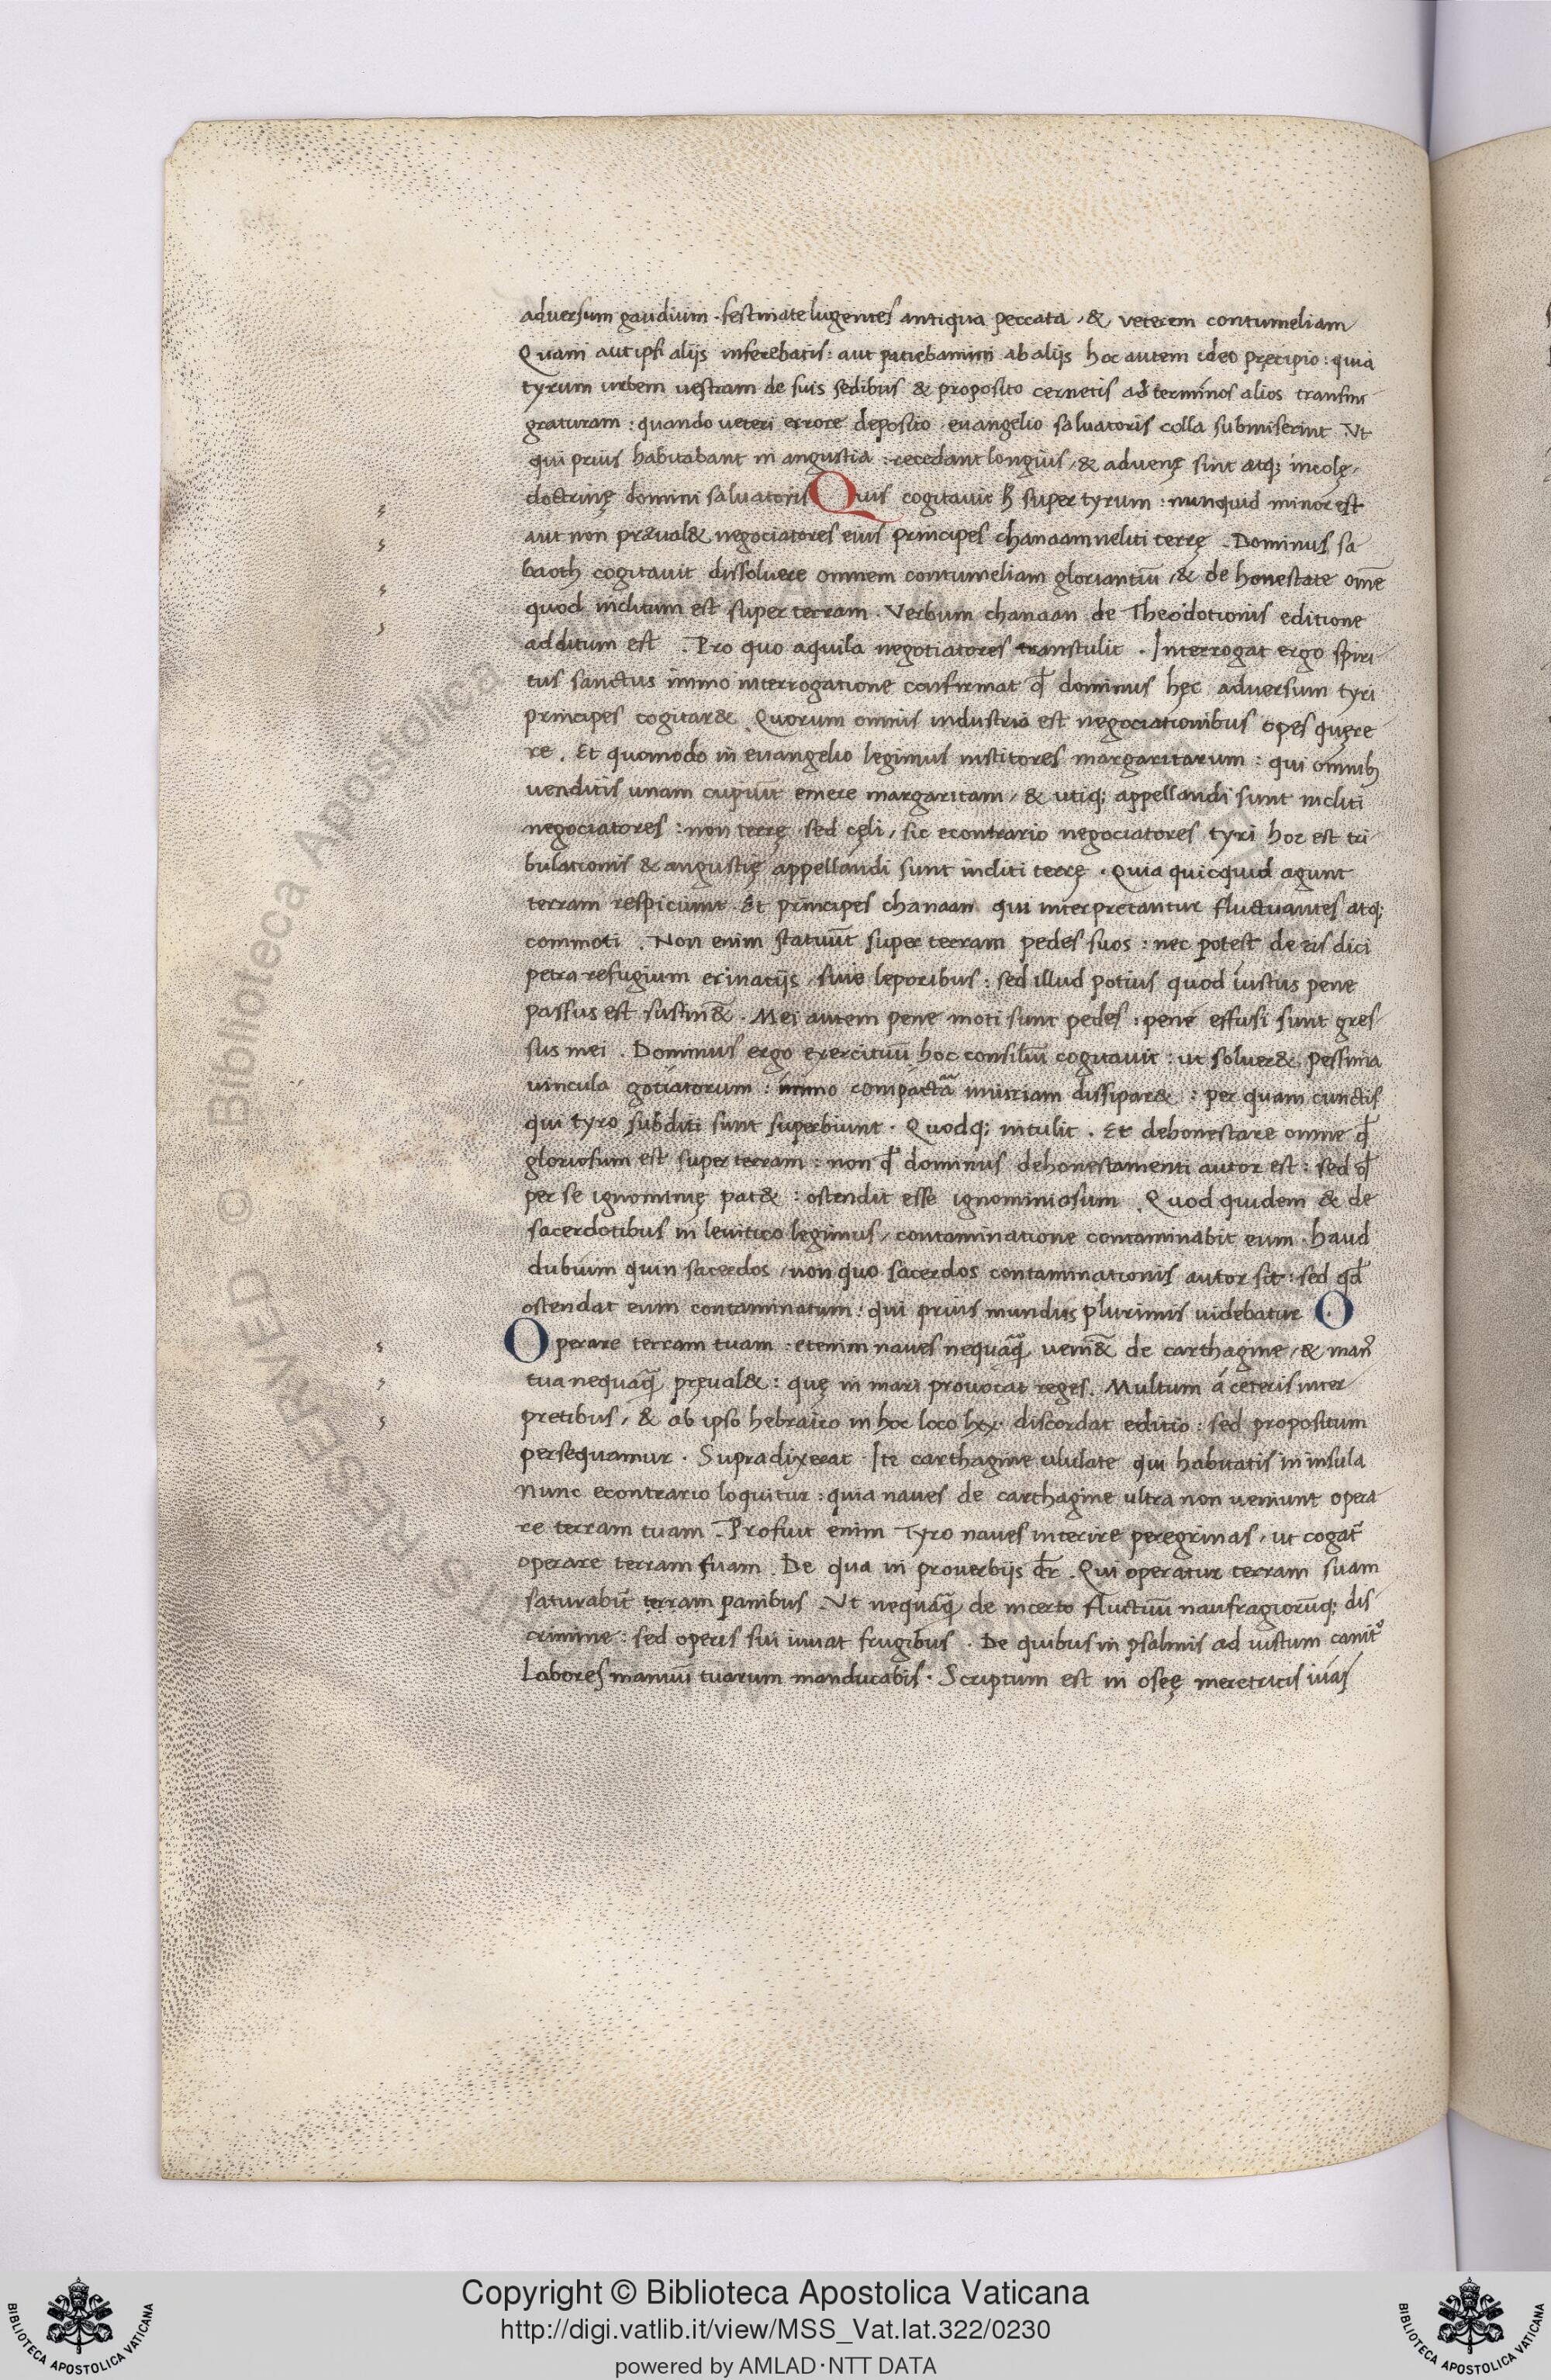 adversum gaudium . festinate lugentes antiqua peccata / & veterem contumeliam
Quam aut ipsi alijs inferebatis : aut patiebamini ab alijs hoc autem ideo pręcipio : quia
tyrum urbem vestram de suis sedibus & proposito cernetis ad terminos alios transmi
graturam : quando veteri errore deposito evangelio salvatoris colla submiserint Ut
qui prius habitabant in angustia : recedant longius / & advenę sint atq; incolę /
doctrinę domini salvatoris Quis cogitavit h̄ super tyrum : nunquid minor est
aut non præval& negociatores eius principes chanaam incliti terrę . Dominus sa
baoth cogitavit dissolvere omnem contumeliam gloriantiū / & de honestate om̄e
quod inclitum est super terram . Verbum chanaan de Theodotionis editione
additum est . Pro quo aquila negotiatores transtulit . Interrogat ergo spiri
tus sanctus immo interrogatione confirmat q̄ dominus hęc adversum tyri
principes cogitar& Quorum omnis industria est negociationibus opes quęre
re . Et quomodo in evangelio legimus institores margaritarum : qui omnib;
venditis unam cupiūt emere margaritam / & utiq; appellandi sunt incliti
negociatores : non terrę sed cęli / sic econtrario negociatores tyri hoc est tri
bulationis & angustię appellandi sunt incliti terrę . Quia quicquid agunt
terram respiciunt . Et principes chanaan qui interpretantur fluctuantes atq;
commoti . Non enim statuūt super terram pedes suos : nec potest de eis dici
petra refugium erinatijs sive leporibus : sed illud potius quod iustus pene
passus est sustin& . Mei autem pene moti sunt pedes : pene effusi sunt gres
sus mei . Dominus ergo exercituū hoc consiliū cogitavit : ut solver& pessima
vincula gotiatorum : immo compactā iniuriam dissipar& : per quam cunctis
qui tyro subditi sunt superbiunt . Quodq; intulit . Et dehonestare omne q̄
gloriosum est super terram : non q̄ dominus dehonestamenti autor est : sed q̄
per se ignominię pat& : ostendit esse ignominiosum . Quod quidem & de
sacerdotibus in levitico legimus / contaminatione contaminabit eum . haud
dubium quin sacerdos / non quo sacerdos contaminationis autor sit : sed qd̄
ostendat eum contaminatum : qui prius mundus plurimis videbatur O
Operare terram tuam . etenim naves nequāq̄ veni& de carthagine / & man̄
tua nequaq̄ pręval& : quę in mari provocat reges . Multum á ceteris inter
pretibus / & ab ipso hebraico in hoc loco lxx . discordat editio : sed propositum
persequamur . Supra dixerat Ite carthagine ululate qui habitatis in insula
Nunc econtrario loquitur : quia naves de carthagine ultra non veniunt opera
re terram tuam . Profuit enim Tyro naves interire peregrinas / ut cogat̄
operare terram suam De qua in proverbijs dr̄ . Qui operatur terram suam
saturabit̄ terram panibus . Ut nequāq̄ de incerto fluctuū naufragiorūq; dis
crimine : sed operis sui iuvat frugibus . De quibus in psalmis ad iustum canit̄
Labores manuū tuarum manducabis . Scriptum est in oseę meretricis
Copyright © Biblioteca Apostolica Vaticana
http://digi.vatlib.it/view/MSS_Vat.lat.322/0230
powered by AMLAD·NTT DATA
BIBLIOTECA APOSTOLICA VATICANA
BIBLIOTECA APOSTOLICA VATICANA